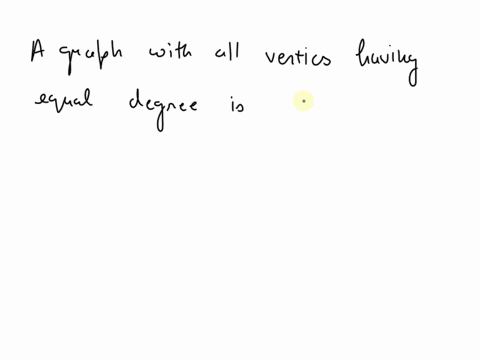 A graph with all vertics having
equal degree is